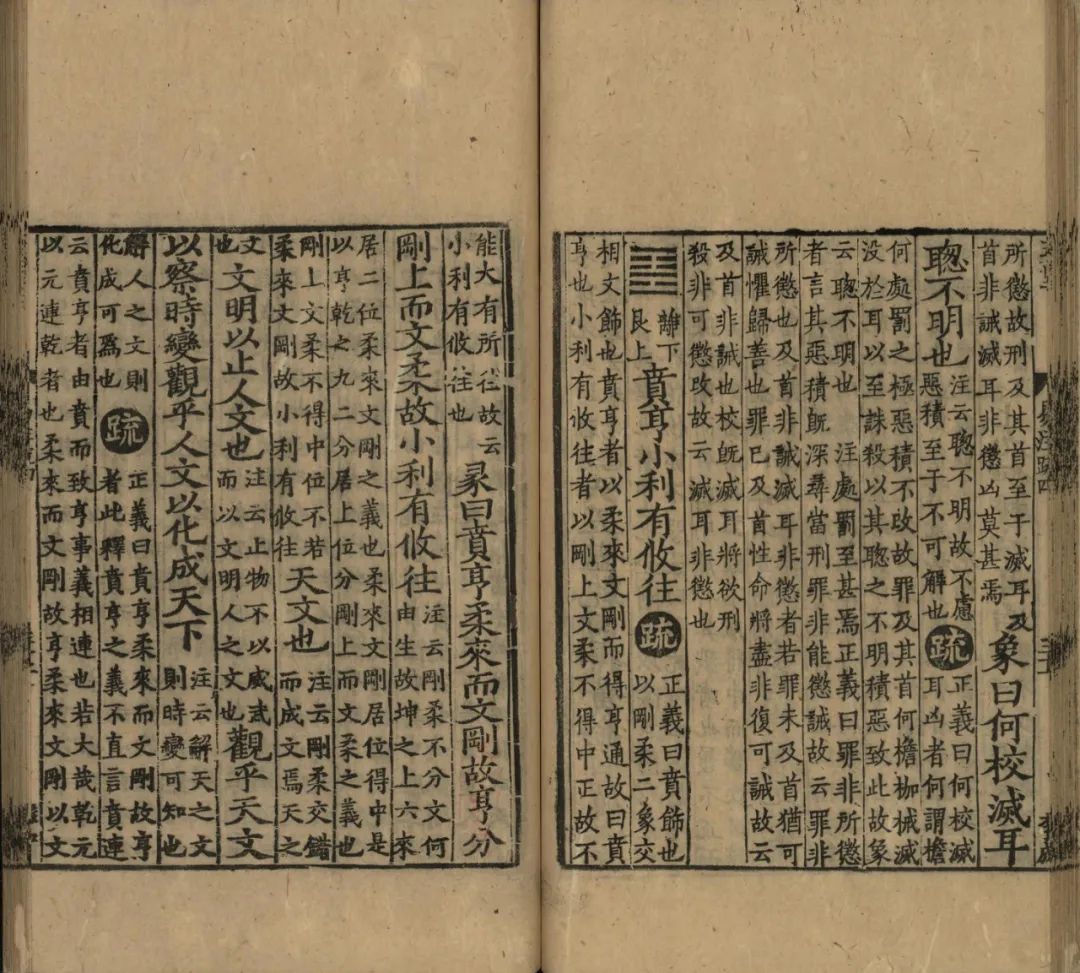 所懲故刑及其首至于滅耳及
首非誡滅耳非懲凶莫甚焉
象曰何校滅耳
聦不明也
注云聦不明故不慮
惡積至于不可解也
疏
正義曰何校滅
耳凶者何謂檐
何處罰之極惡積不改故罪及其首何檐枷械滅
没於耳以至誅殺以其聦之不明積惡致此故象
云聦不明也 注處罰至甚焉正義曰罪非所懲
者言其惡積既深尋當刑罪非能懲誡故云罪非
所懲也及首非誡滅耳非懲者若罪未及首猶可
誡懼歸善也罪已及首性命將盡非復可誡故云
及首非誡也校既滅耳將欲刑
殺非可懲改故云滅耳非懲也
離下
艮上
賁亨小利有攸往
疏
正義曰賁飾也
以剛柔二象交
相文飾也賁亨者以柔來文剛而得亨通故曰賁
亨也小利有攸往者以剛上文柔不得中正故不
能大有所往故云
小利有攸往也
彖曰賁亨柔來而文剛故亨分
剛上而文柔故小利有攸往
注云剛柔不分文何
由生故坤之上六來
居二位柔來文剛之義也柔來文剛居位得中是
以亨乾之九二分居上位分剛上而文柔之義也
剛上文柔不得中位不若
柔來文剛故小利有攸往
天文也
注云剛柔交錯
而成文焉天之
文
也
文明以止人文也
注云止物不以威武
而以文明人之文也
觀乎天文
以察時變觀乎人文以化成天下
注云解天之文
則時變可知也
解人之文則
化成可爲也
疏
正義曰賁亨柔來而文剛故亨
者此釋賁亨之義不直言賁連
云賁亨者由賁而致亨事義相連也若大哉乾元
以元連乾者也柔來而文剛故亨柔來文剛以文